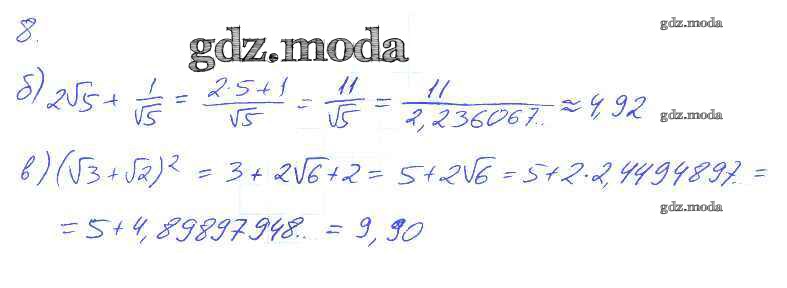 8.
gdz.moda
gdz.moda
б) 2√5 + 1/√5 = (2·5+1)/√5 = 11/√5 = 11/2,236067.. ≈ 4,92
gdz.moda
в) (√3 + √2)² = 3 + 2√6 + 2 = 5 + 2√6 = 5 + 2·2,4494897.. =
gdz.moda
= 5 + 4,89897948.. = 9,90